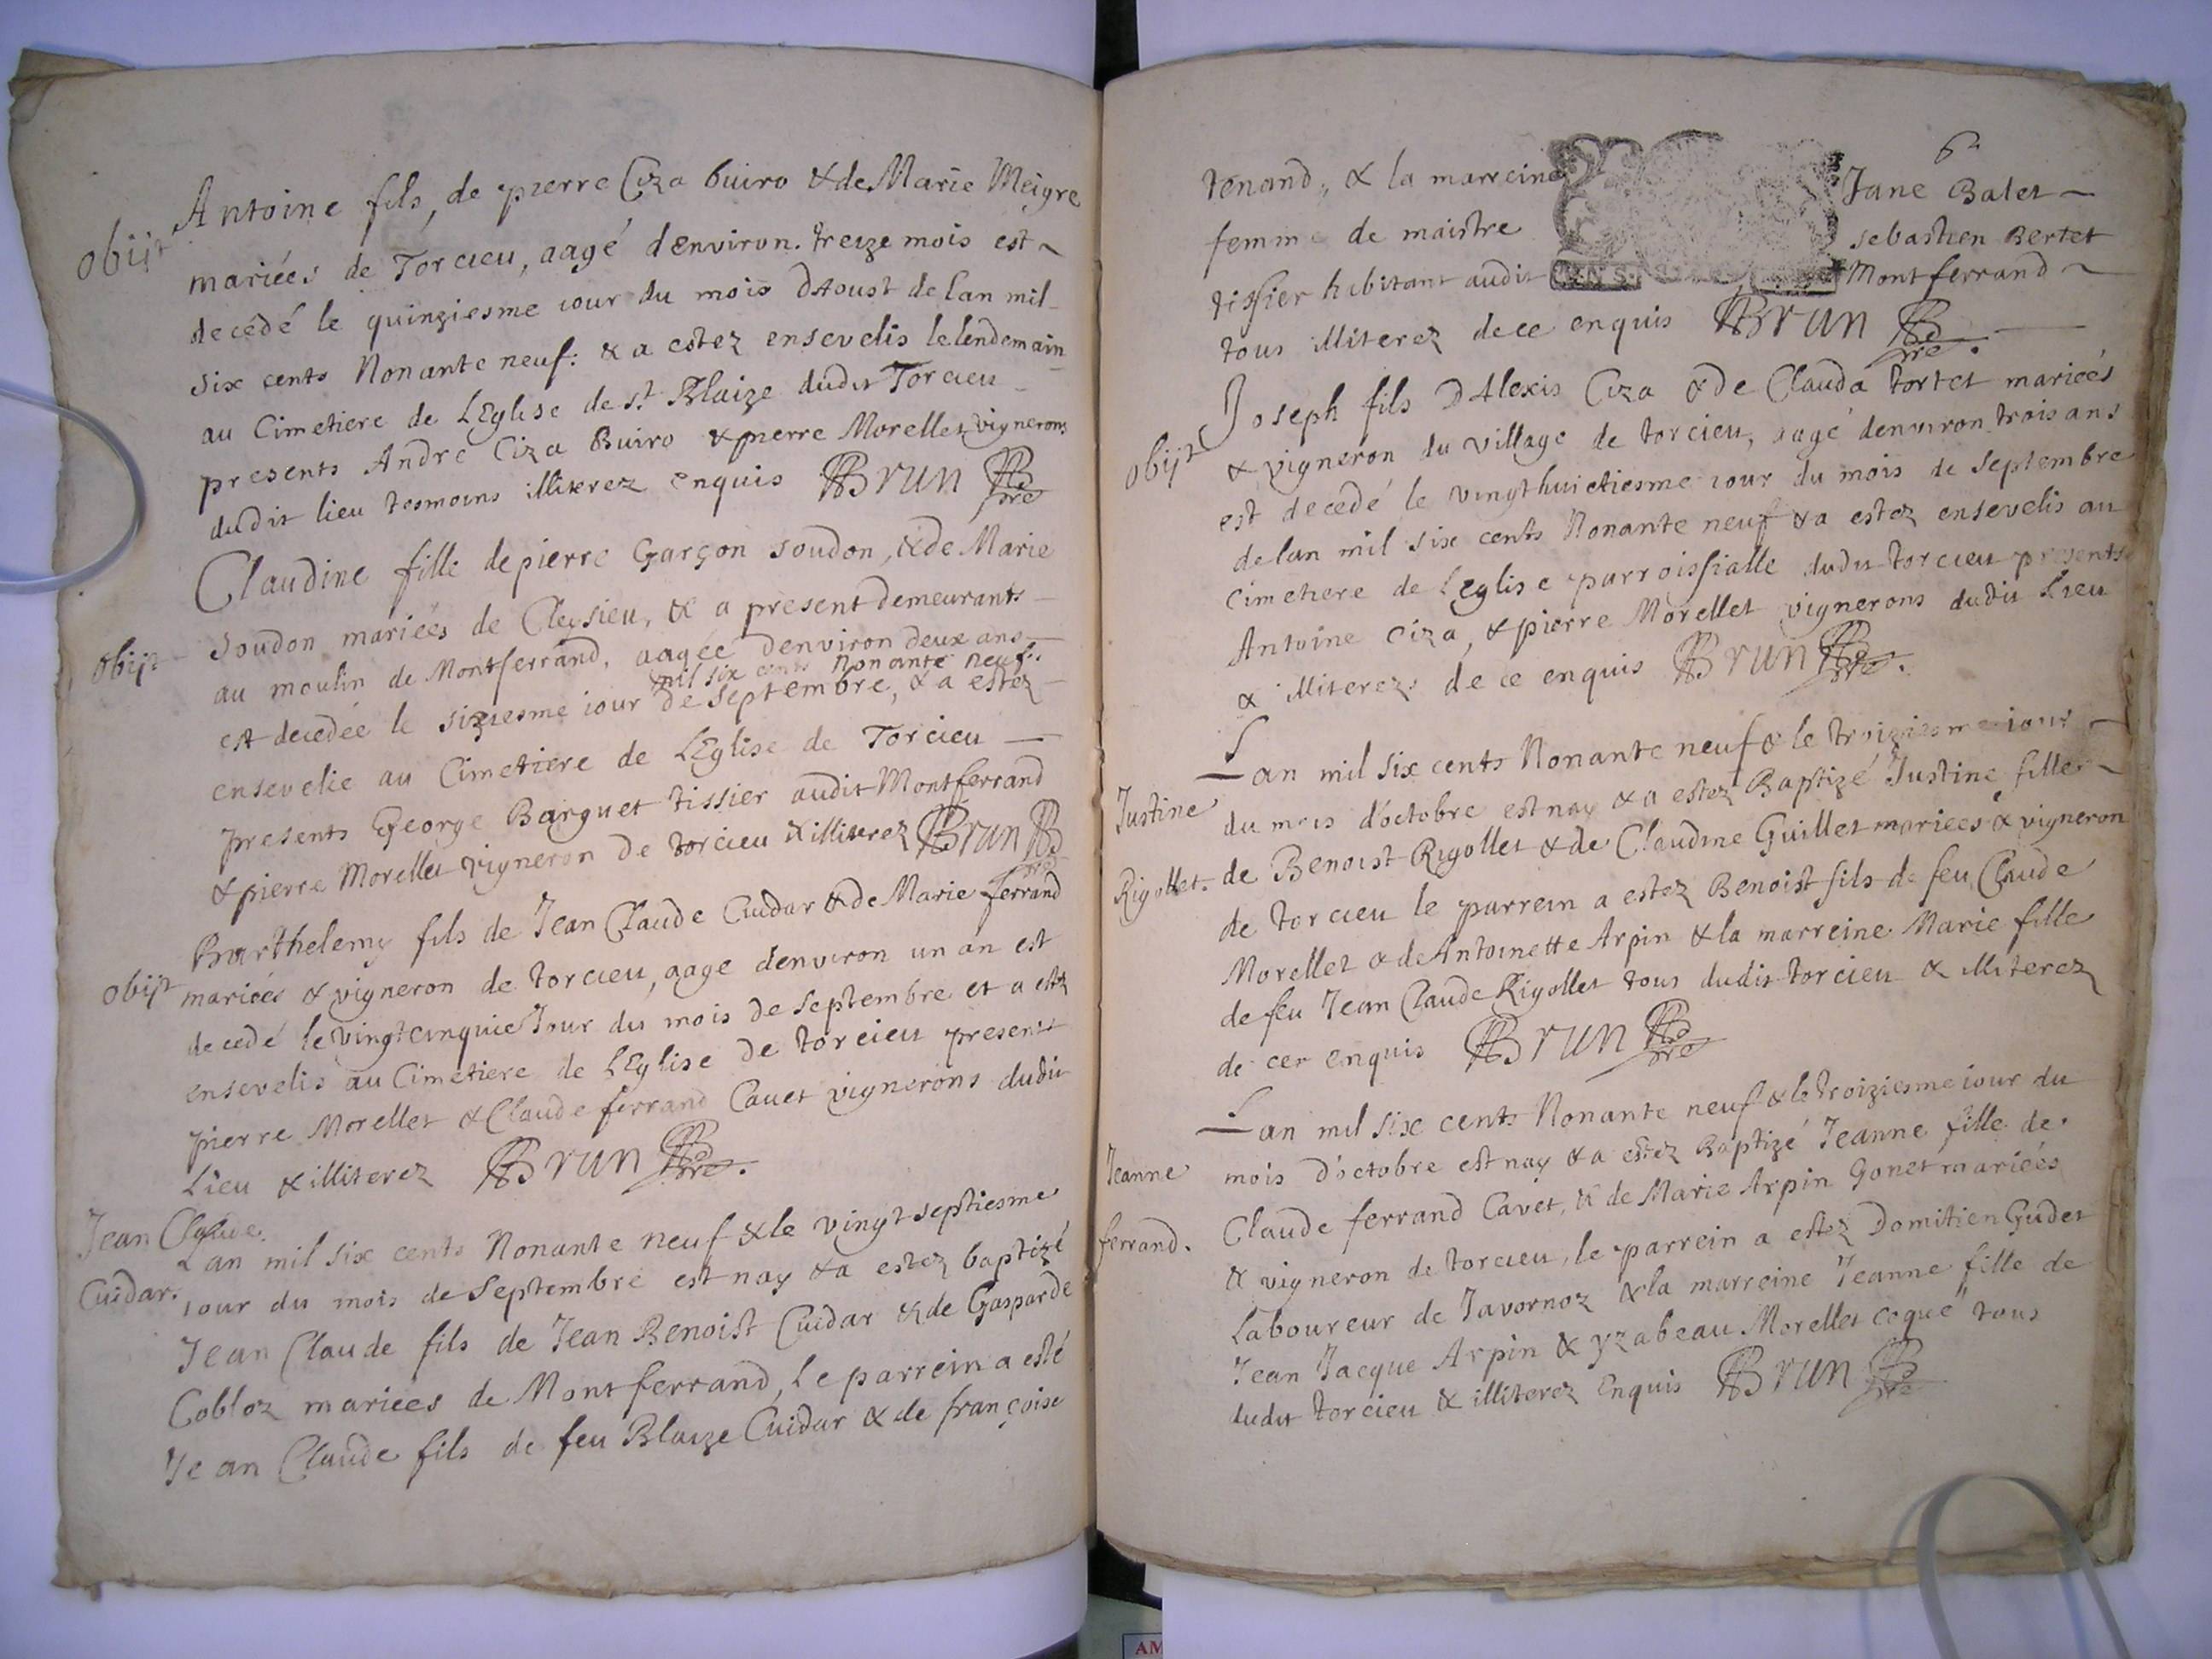 Antoine fils, de pierre Ciza buiro & de Marie Meigre
obijt
mariées de Torcieu, aagé denviron. treize mois est ~
decédé le quinziesme iour du mois DAoust de lan mil
six cents Nonante neuf: & a estez ensevelis le lendemain
au Cimetiere de LEglise de st Blaize dudit Torcieu
presents André Ciza Buiro & pierre Morellet vignerons
dudit lieu tesmoins illiterez enquis Brun pre
Claudine fille de pierre Garçon soudon, & de Marie
soudon mariées de Cleysieu, & a present demeurants
obijt
au moulin de Montferrand, aagée denviron deux ans
mil six cents Nonante neuf
est decedée le siziesme iour de septembre, & a estez
ensevelie au Cimetiere de LEglise de Torcieu
presents George Barguet tissier audit Montferrand
& pierre Morellet vigneron de torcieu & illiterez Brun pre
Barthelemy fils de Jean Claude Cuidar & de Marie ferrand
obijt
mariées & vigneron de torcieu, aage denviron un an est
decedé le vingtcinquie Jour du mois de septembre et a estez
ensevelis au Cimetiere de LEglise de torcieu present
pierre Morellet & Claude ferrand Cavet vignerons dudit
Lieu & illiterez Brun pre.
Jean Claude
Cuidar.
Lan mil six cents Nonante neuf & le vingt septiesme
iour du mois de septembre est nay & a estez baptizé
Jean Claude fils de Jean Benoist Cuidar & de Gasparde
Cobloz mariees de Montferrand, le parrein a esté
Jean Claude fils de feu Blaize Cuidar & de françoise
6
tenand, & la marreine Jane Balet ~
femme de maistre sebastien Bertet
tissier habitant audit Montferrand ~
tous illiterez de ce enquis Brun pre.
Joseph fils DAlexis Ciza & de Clauda tortet mariées
obijt
& vigneron du village de torcieu, aagé denviron trois ans
est decedé le vingthuictiesme iour du mois de septembre
de lan mil six cents Nonante neuf & a estez ensevelis au
cimetiere de leglise parroissialle dudit torcieu presents
Antoine ciza, & pierre Morellet vignerons dudit Lieu
& illiterez de ce enquis Brun pre.
Lan mil six cents Nonante neuf & le troiziesme iour
Justine
Rigollet.
du mois d'octobre est nay & a estez Baptizé Justine fille
de Benoist Rigollet & de Claudine Guillet mariees & vigneron
de torcieu le parrein a estez Benoist fils de feu Claude
Morellet & de Antoinette Arpin & la marreine Marie fille
de feu Jean Claude Rigollet tous dudit torcieu & illiterez
de cer enquis Brun pre
Lan mil six cents Nonante neuf & le troiziesme iour du
Jeanne
ferrand.
mois d'octobre est nay & a estez Baptizé Jeanne fille de
Claude ferrand Cavet, & de Marie Arpin Gonet mariées
& vigneron de torcieu, le parrein a estez Domitien Gudet
Laboureur de Javornoz & la marreine Jeanne fille de
Jean Jacque Arpin & yzabeau Morellet coque tous
dudit torcieu & illiterez Enquis Brun pre